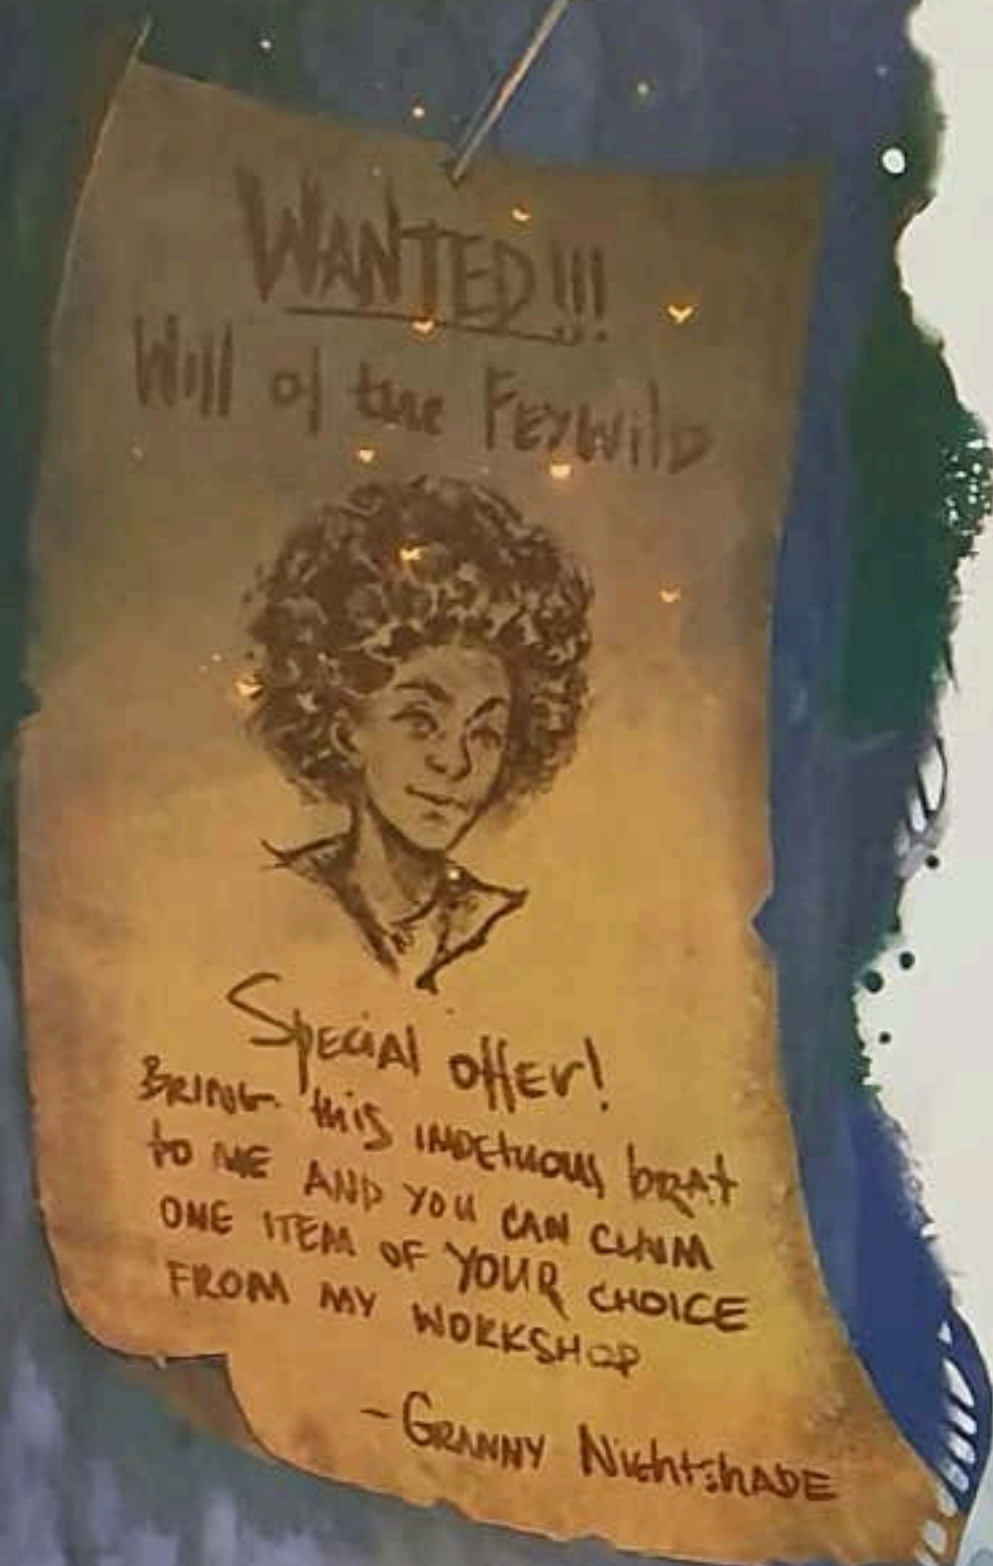 WANTED!!!
Will of the FEYWILD
SPECIAL offer!
BRING this IMPETUOUS brAt
to ME AND YOU CAN CLAIM
ONE ITEM OF YOUR CHOICE
FROM MY WORKSHOP
-GRANNY NightshADE